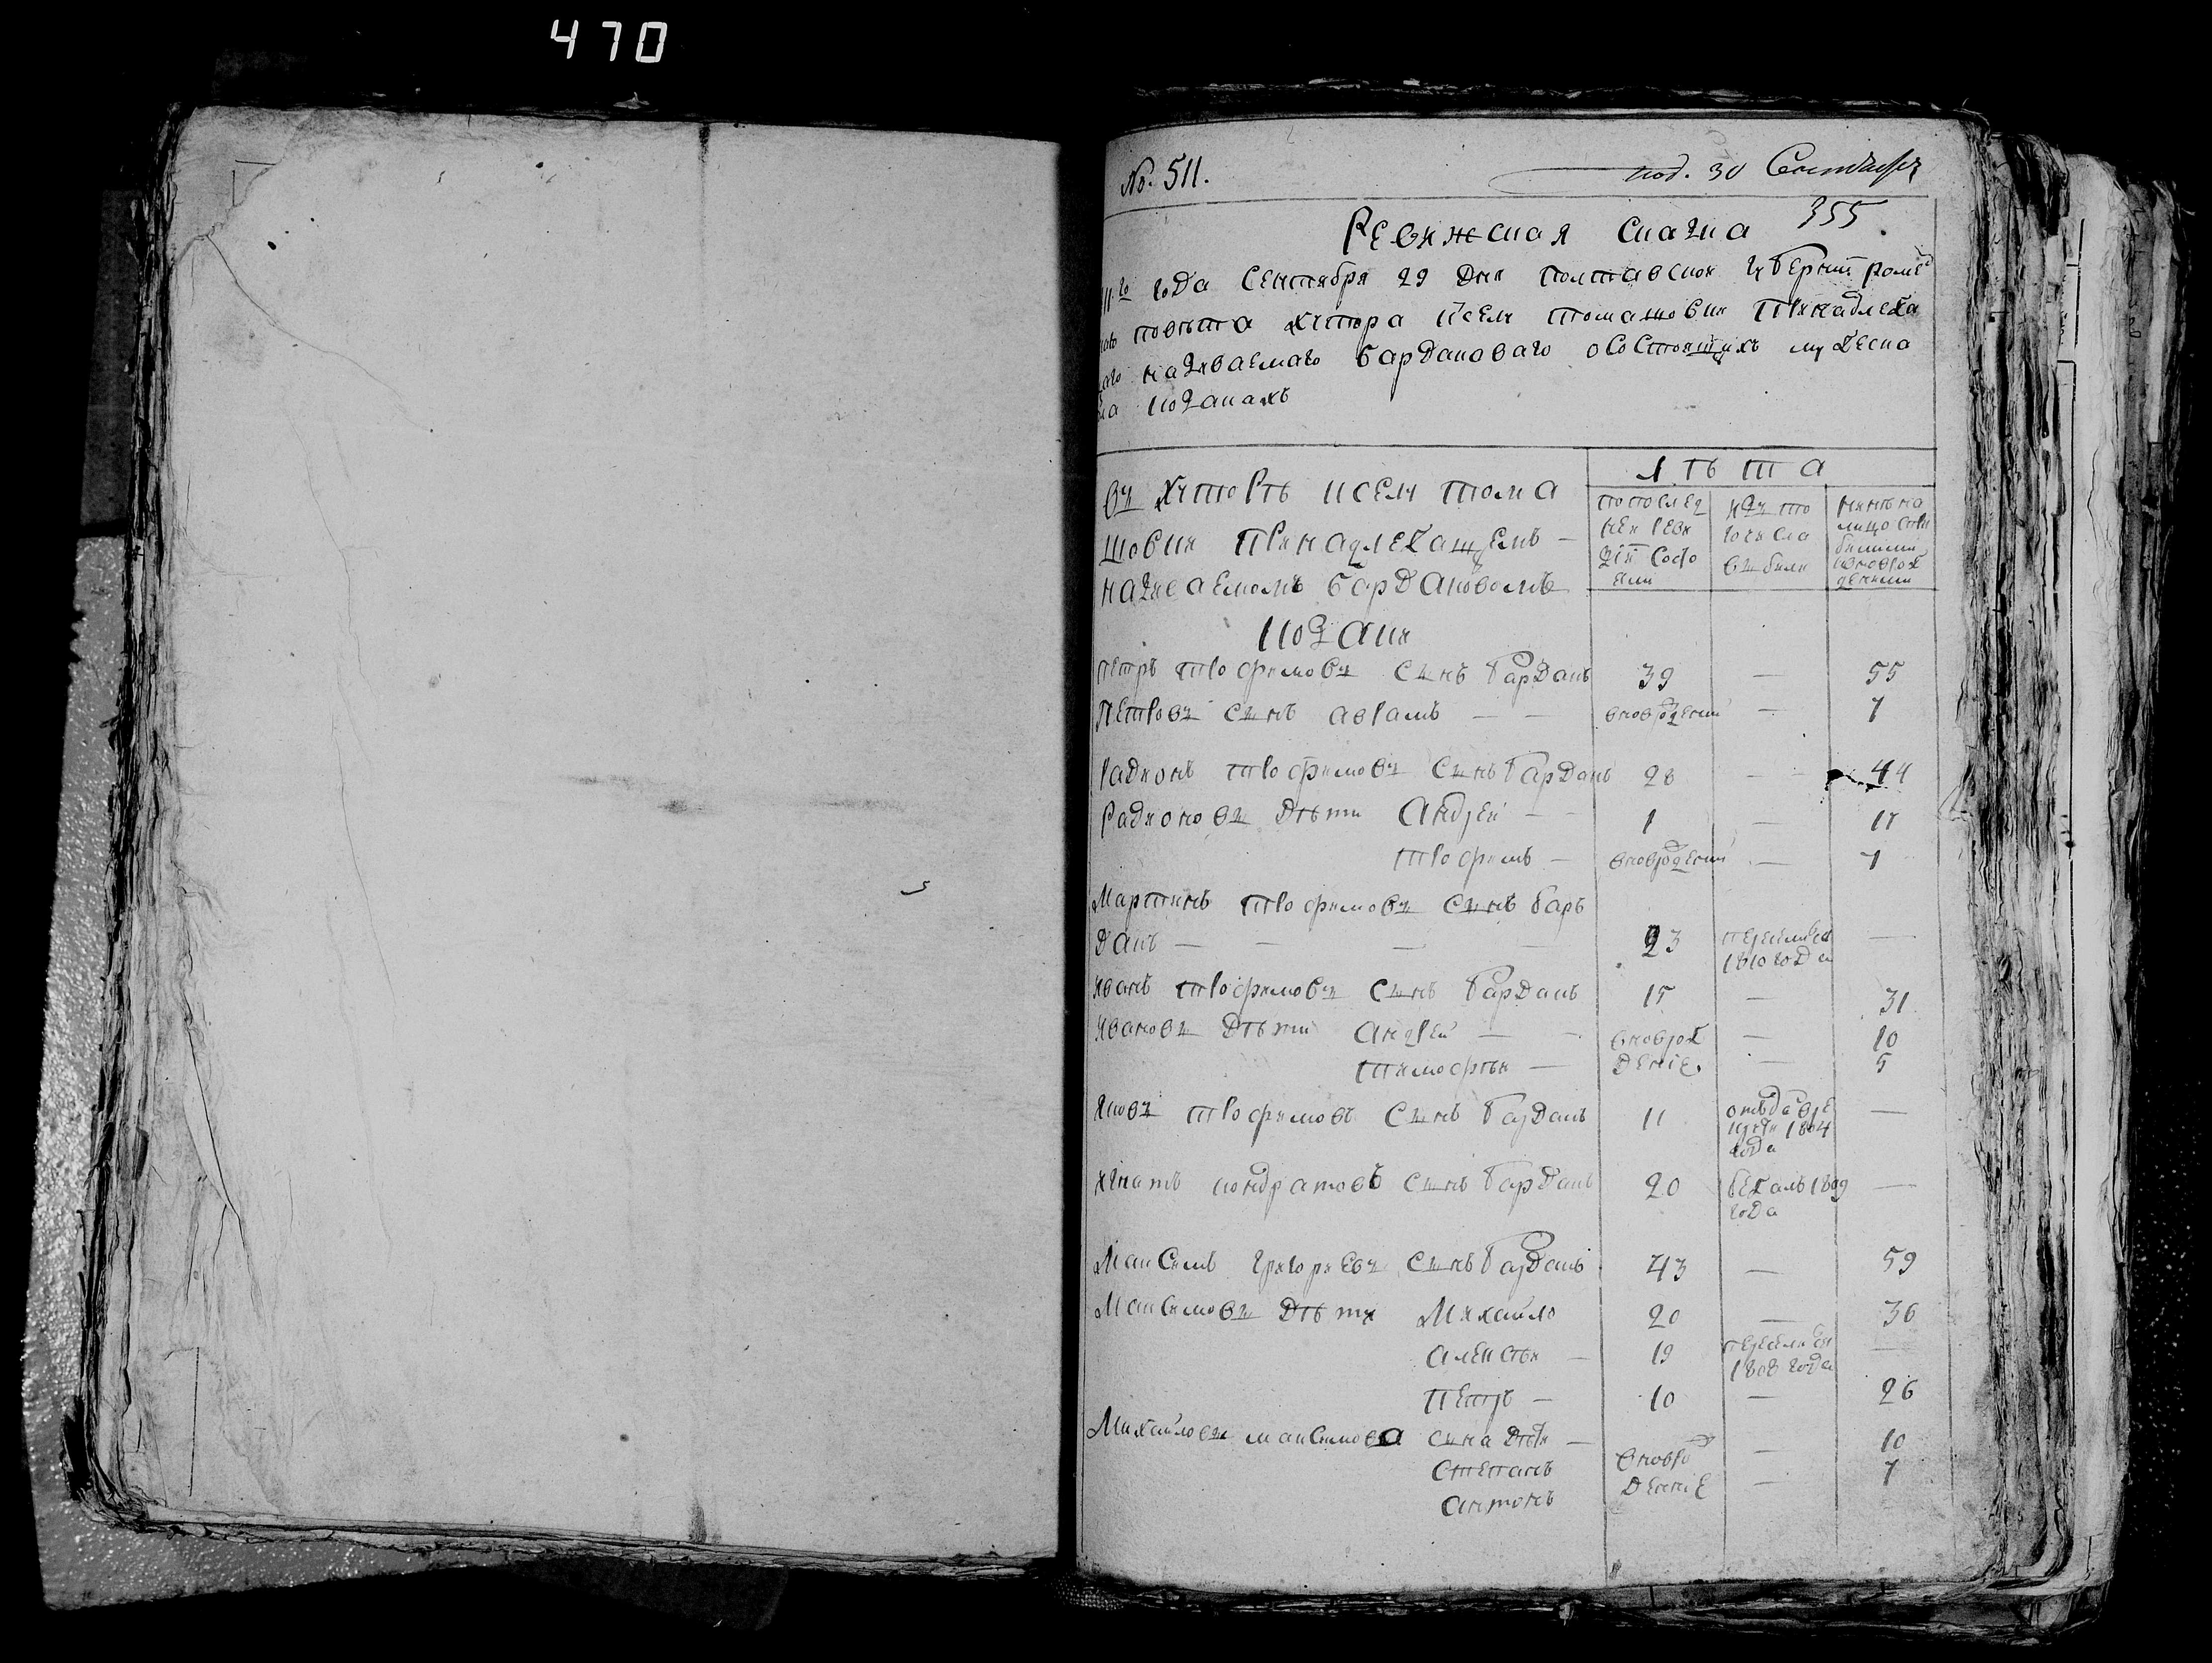 470
No. 511.
под. 30 Сентября
Ревижская скаска 355
11го года сентября 29 дня полтавской губернии ромен
повета хутора к селу томашовки принадлежа
називаемаго бардаковаго о состоящихъ мужеска
козакахъ
въ хуторѣ к селу тома
шовки принадлежащемъ —
називаемомъ бардаковомъ
козаки
лѣта
по послед
ней реви
зіи состо
яли
изъ то
го числа
выбыло
нинѣ на
лицо съ при
бившими
и новорож
денными
петръ трофимовъ сынъ бардакъ 39 — 55
петровъ сынъ аврамъ — — вноврожденний — 7
радионъ трофимовъ сынъ бардакъ 28 — 44
радионовы дѣти Андрей — 1 — 17
трофимъ — вноврожденний — 7
Мартинъ трофимовъ сынъ бар
дакъ — — — — 23 переселился 1810 года —
иванъ трофимовъ сынъ бардакъ 15 — 31
ивановы дѣти андрей — вноврож — 10
тимофѣй — деніе — 5
яковъ трофимовъ сынъ бардакъ 11 отъдан в рекруты 1804 года —
игнатъ кондратовъ сынъ бардакъ 20 бежалъ 1809 года —
Максимъ григориевъ сынъ бардакъ 43 — 59
Максимовы дѣти Михайло 20 — 36
алексѣй — 19 переселился 1808 года —
Петръ — 10 — 26
Михайловы максимова сына дѣти —
степанъ вновро — 10
антонъ дение — 7